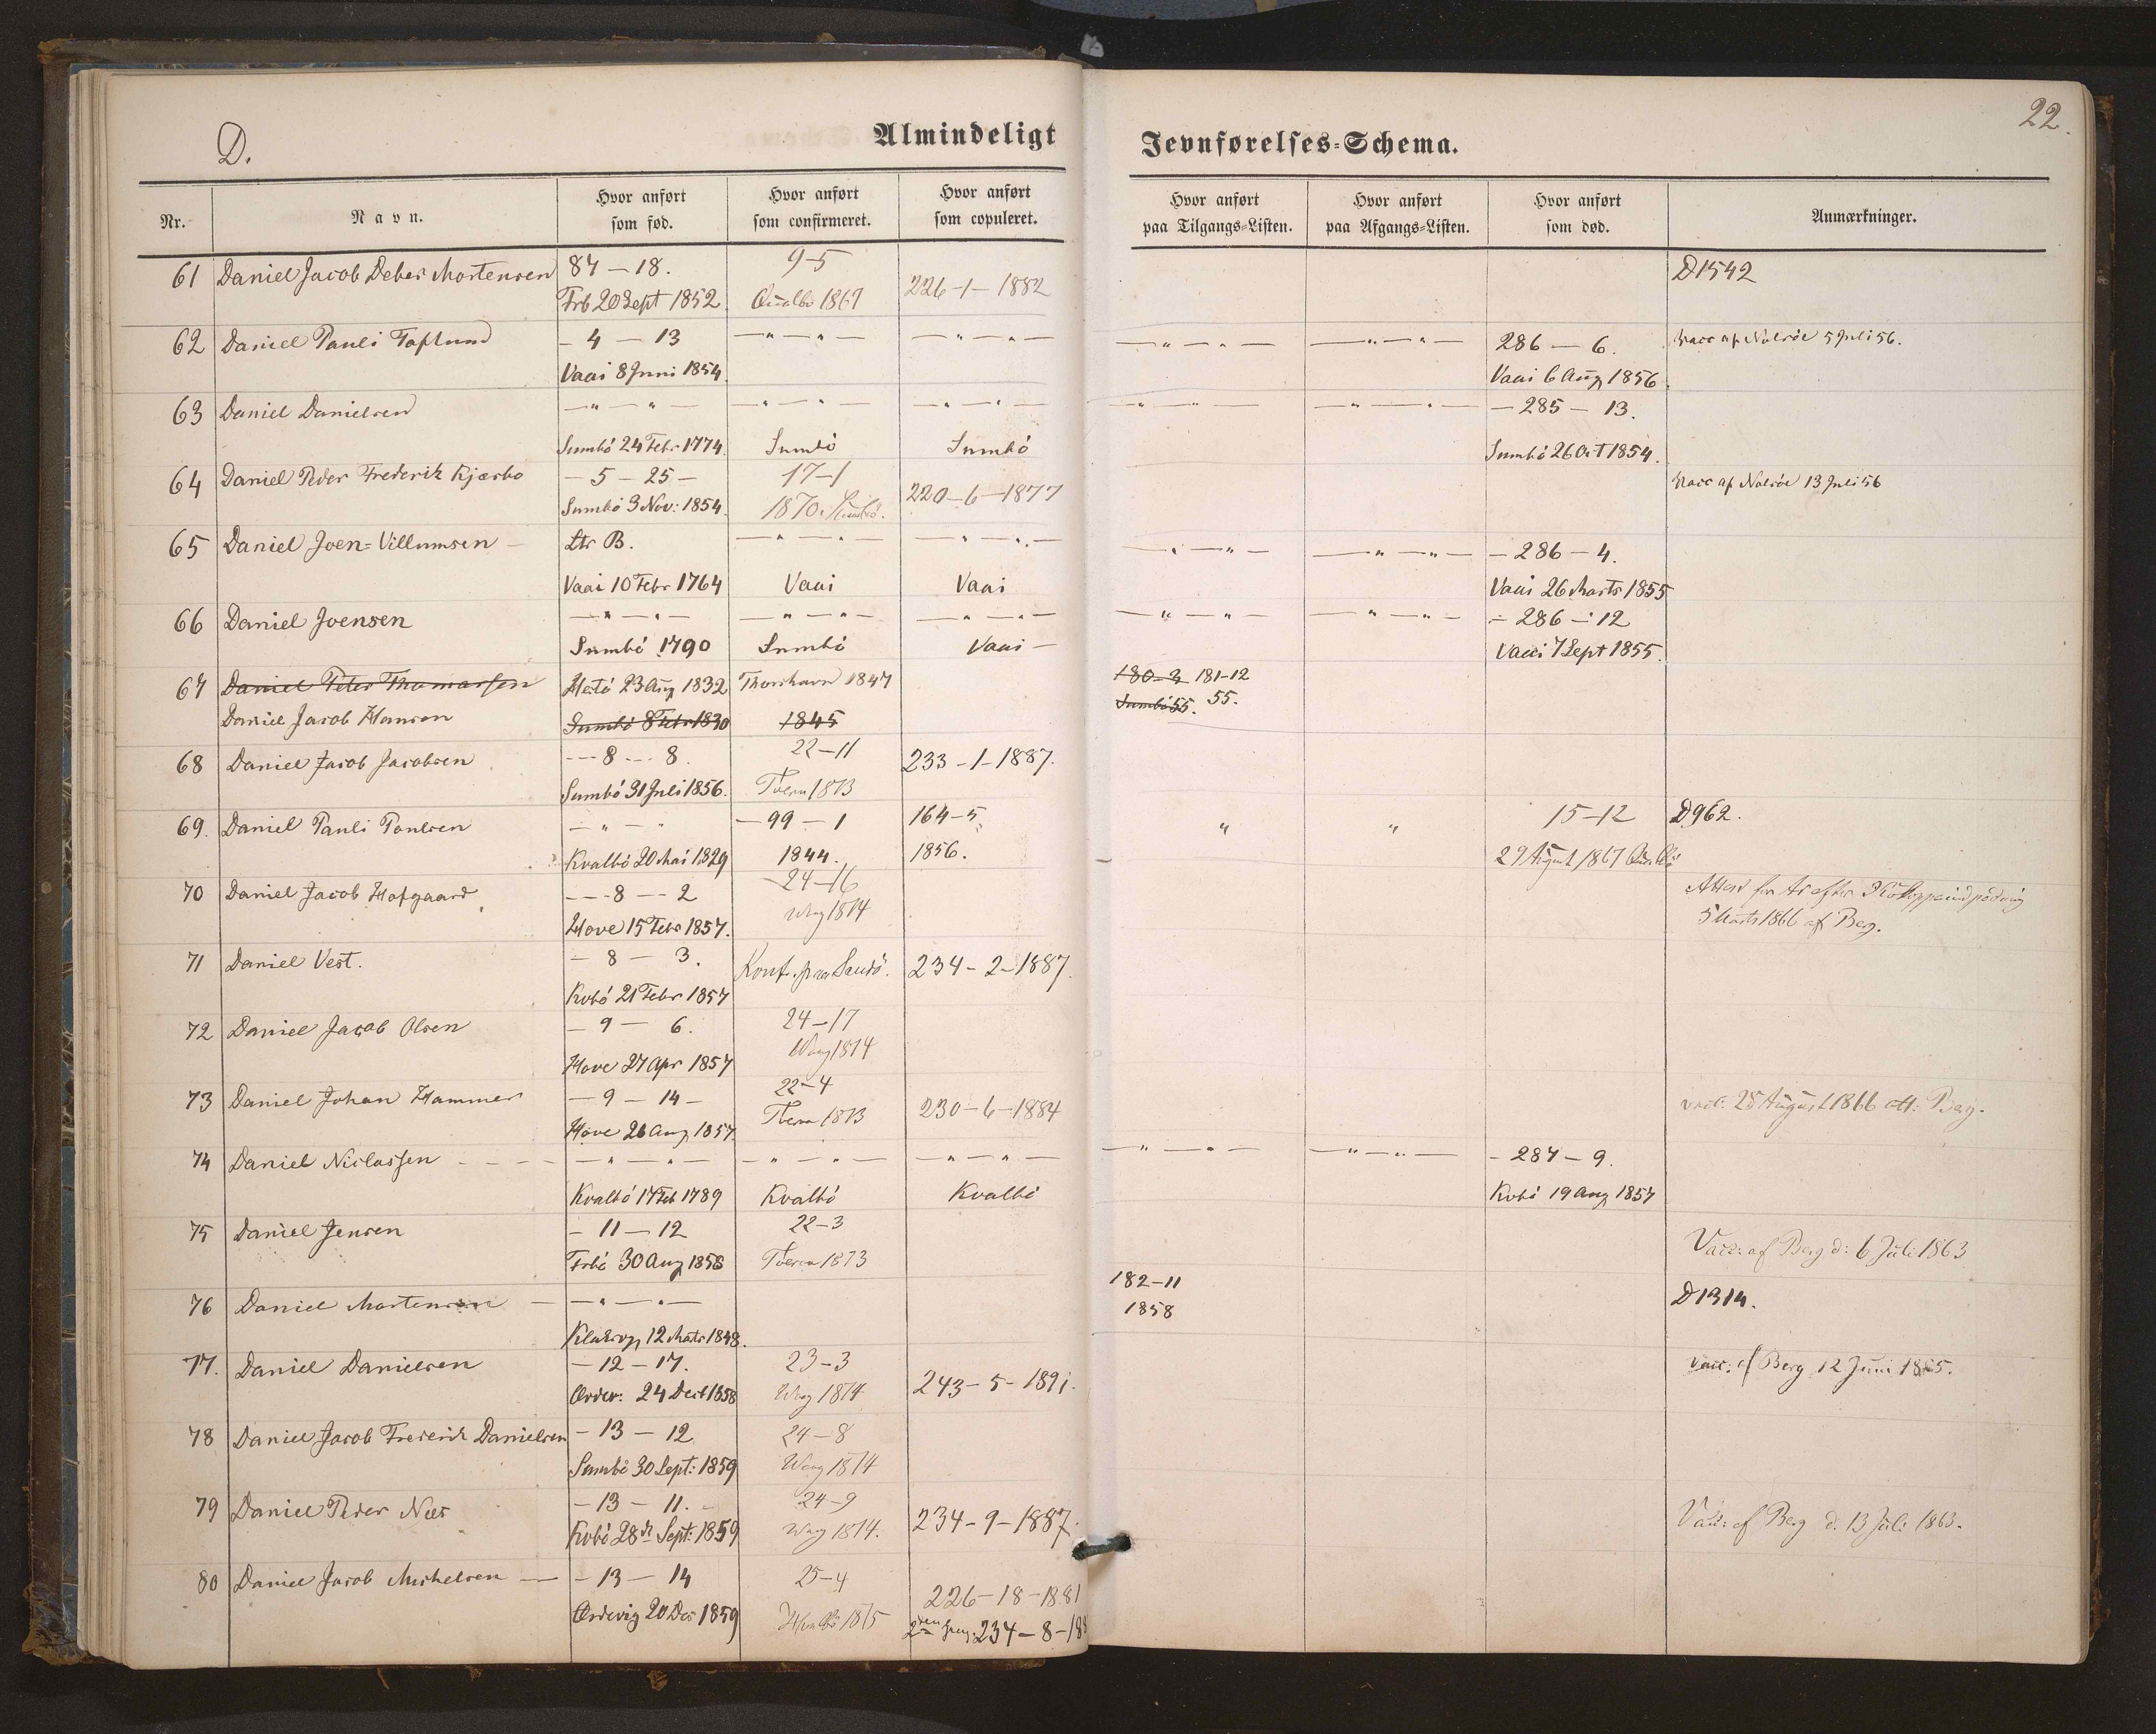 22.
D.
Almindeligt Jevnførelses-Schema.
Nr. Navn. Hvor anført som fød. Hvor anført som confirmeret. Hvor anført som copuleret. Hvor anført paa Tilgangs-Listen. Hvor anført paa Afgangs-Listen. Hvor anført som død. Anmærkninger.
61 Daniel Jacob Debes Mortensen 87 — 18. 9-5 226-1-1882 D1542
Frb 20 Sept 1852 1867
62 Daniel Pauli — 4 — 13 — " — " — — " — " — — " — " — — " — " — 286 — 6. Vacc af Nolsöe 5 Juli 56.
Vaai 8 Juni 1854. Vaai 6 Aug 1856.
63 Daniel Danielsen — " — " — — " — " — — " — " — — " — " — — " — " — — 285 — 13.
Sumbö 24 Febr 1774. Sumbö Sumbö Sumbö 26 Oct 1854.
64 Daniel Peder Frederik Kjærbo — 5 — 25 — 17-1 220-6-1877 Vacc af Nolsöe 13 Juli 56
Sumbö 3 Nov: 1854. 1870. Sumbö.
65 Daniel Joen-Villumsen — Ltr B. — " — " — — " — " — — " — " — — " — " — — 286 — 4.
Vaai 10 Febr 1764 Vaai Vaai Vaai 26 Marts 1855
66 Daniel Joensen — " — " — — " — " — — " — " — — " — " — — " — " — — 286 — 12
Sumbö 1790 Sumbö Vaai — Vaai 7 Sept 1855.
67 Daniel Peter Thomassen Hestö 23 Aug 1832 Thorshavn 1847 180-3 181-12
Daniel Jacob Hansen Sumbö 8 Febr 1830 1845 Sumbö 55. 55.
68 Daniel Jacob Jacobsen — 8 — 8. 22-11 233-1-1887.
Sumbö 31 Juli 1856. Tveraa 1873
69. Daniel Pauli Poulsen — " — " — 99 — 1 164-5 " " 15-12 D962.
Kvalbö 20 Mai 1829 1844. 1856. 29 August 1867
70 Daniel Jacob Hofgaard — 8 — 2 24-16
Hove 15 Febr 1857. Waag 1874 5 Marts 1866 af Berg.
71 Daniel Vest. — 8 — 3. Konf. paa Sandö. 234-2-1887.
Kvbö 21 Febr 1857
72 Daniel Jacob Olsen — 9 — 6. 24-17
Hove 27 Apr 1857 Waag 1874
73 Daniel Johan Hammer — 9 — 14 — 22-4 230-6-1884 vacc: 28 August 1866 att: Berg.
Hove 26 Aug 1857. Tveraa 1873
74 Daniel Niclassen — — — " — " — — " — " — — " — " — — " — " — — " — " — — 287 — 9.
Kvalbö 17 Feb 1789 Kvalbö Kvalbö Kvbö 19 Aug 1857
75 Daniel Jensen — 11 — 12 22-3 Vacc: af Berg d: 6 Juli 1863
Frbö 30 Aug 1858 Tveraa 1873
76 Daniel Mortensen — — " — " — 182-11 D1314.
12 Marts 1848. 1858
77. Daniel Danielsen — 12 — 17. 23-3 243-5-1891. vacc: af Berg 12 Juni 1865.
Ordev: 24 Dec 1858 Waag 1874
78 Daniel Jacob Frederik Danielsen — 13 — 12 24-8
Sumbö 30 Sept: 1859 Waag 1874
79 Daniel Peder Nees — 13 — 11. — 24-9 234-9-1887. Vacc: af Berg d: 13 Juli 1863.
Kvbö 28de Sept: 1859 Waag 1874.
80 Daniel Jacob Michelsen — — 13 — 14 25-4 226-18-1881
Ordevig 20 Dec 1859 1875 2den Gang: 234-8-18